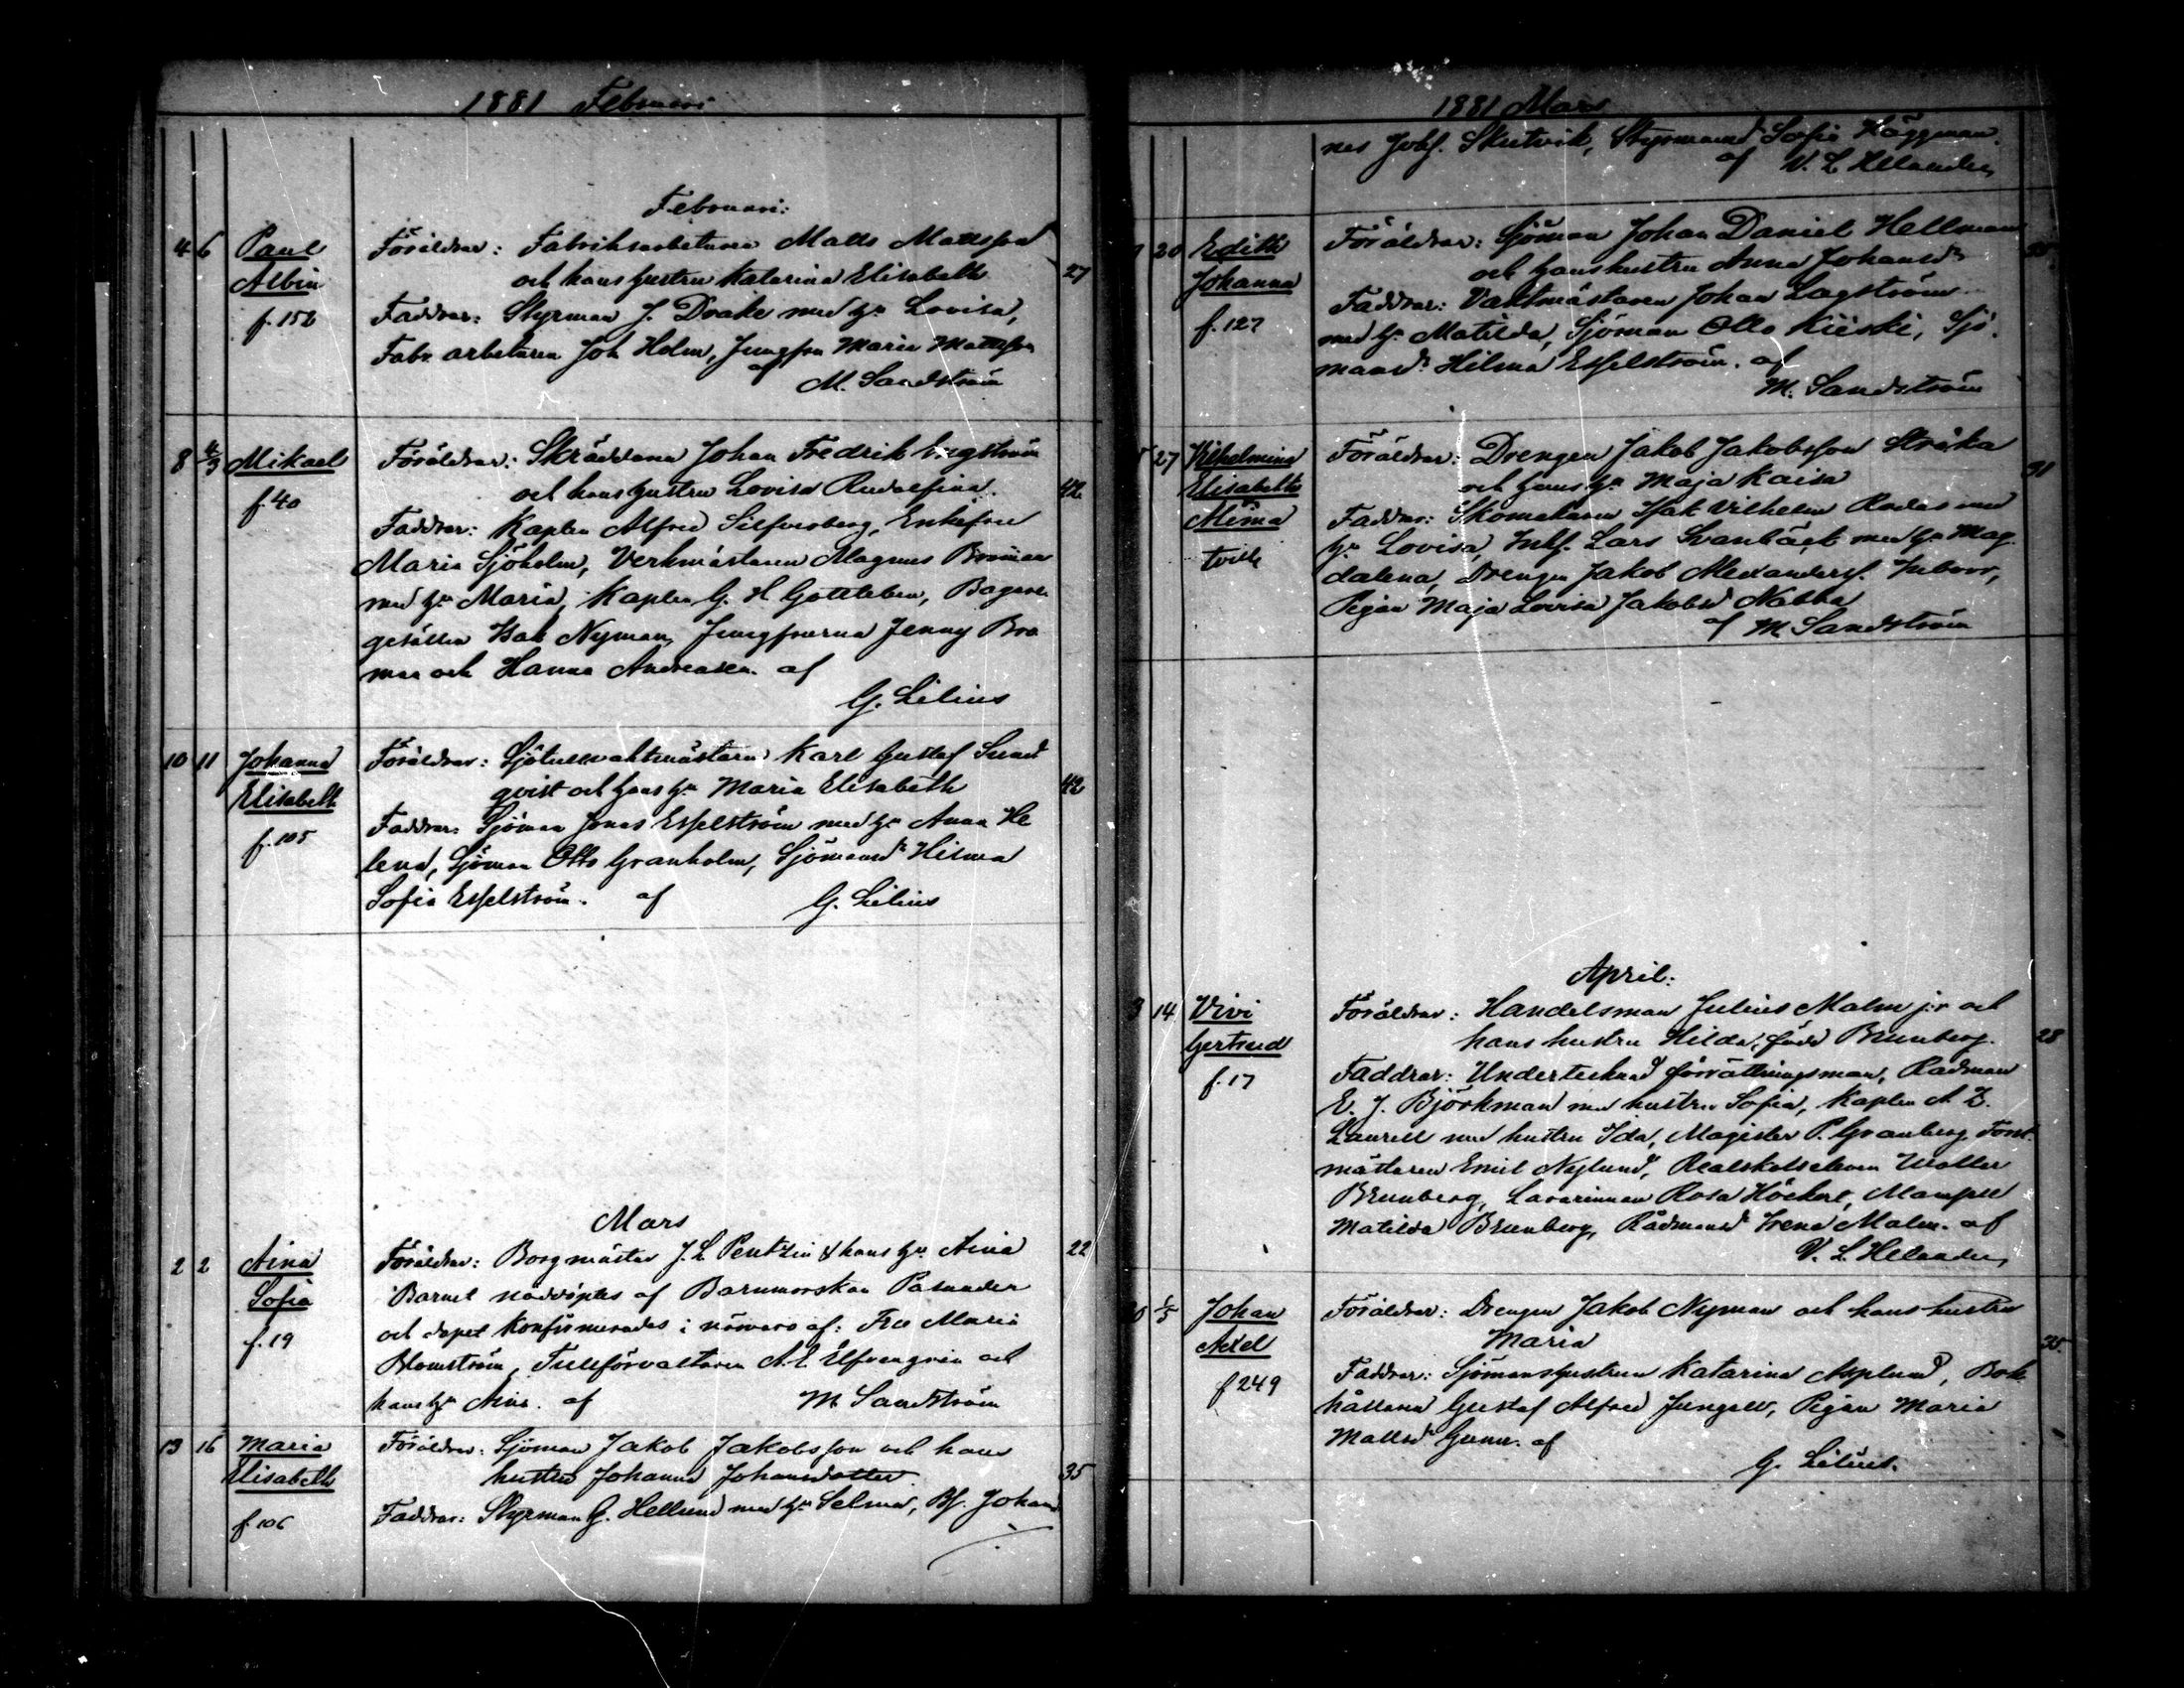 1881 Februari
Februari:
4 6 Paul Föräldrar: Fabriksarbetaren Matts Mattsson
Albin och hans hustru Katarina Elisabeth 27
f. 152 Faddrar: Styrman J. Drake med h:u Lovisa,
Fabr. arbetaren Joh Holm, Jungfru Maria Mattsson
af M. Sandström
8 Mikael Föräldrar: Skräddaren Johan Fredrik Engström
f. 40 och hans hustru Lovisa Rudolfina. 42
Faddrar: Kapten Alfred Silfversberg, Enkefru
Maria Sjöholm, Verkmästaren Magnus Broman
med h:u Maria, Kapten G. H Gottleben, Bagare
gesällen Isak Nyman, Jungfruarna Jenny Bro
man och Hanna Andreasen. af
G. Lilius
10 11 Johanna Föräldrar: Sjötullvaktmästaren Karl Gustaf Sund
Elisabeth qvist och hans h:u Maria Elisabeth 42
f. 105 Faddrar: Sjöman Jonas Esselström med h:u Anna He
lena, Sjöman Otto Granholm, Sjömansd:r Hilma
Sofia Esselström. af G. Lilius
Mars
2 2 Aina Föräldrar: Borgmästar J. L Pentzin & hans h:u Aina 22
Sofia Barnet nöddöptes af Barnmorskan
f. 19 och dopet konfirmerades i närvaro af: Fru Maria
Blomström, Tullförvaltaren A. L. Elfvengren och
hans h:u Aina. af M. Sandström
13 16 Maria Föräldrar: Sjöman Jakob Jakobsson och hans
Elisabeth hustru Johanna Johansdotter 35
f. 106 Faddrar: Styrman G. Hellund med h:u Selma, Bf. Johan
1881 Mars
nes Jobs. Skutvik, Styrmansd:r Sofia Häggman.
af V. L Helander
20 Edith Föräldrar: Sjöman Johan Daniel Hellman
Johanna och hans hustru Anna Johansd:r
f. 127 Faddrar: Vaktmästaren Johan Lagström
med h:u Matilda, Sjöman Otto Kiiski, Sjö
mansd:r Hilma Esselström. af
M. Sandström
27 Vilhelmina Föräldrar: Drengen Jakob Jakobsson Stråka
Elisabeth och hans h:u Maja Kaisa 31
Faddrar: Skomakaren Isak Vilhelm med
h:u Lovisa, Inh. Lars Svanbäck med h:u Mag
dalena, Drengen Jakob Alexanders.
Pigan Maja Lovisa Jakobsd:r Nabba
af M. Sandström
April:
3 14 Vivi Föräldrar: Handelsman Julius Malm j:r och
Gertrud hans hustru Hilda, född Brunberg. 28
f. 17 Faddrar: Undertecknad förrättningsman, Rådman
E. J. Björkman med hustru Sofia, Kapten A Z.
Laurell med hustru Ida, Magister P. Granberg, Forst
mästaren Emil Nylund, Realskoleeleven Walter
Brunberg, Lärarinnan Rosa Höckert, Mamsell
Matilda Brunberg, Rådmansd:r Irene Malm. af
V. L. Helander
Johan Föräldrar: Drengen Jakob Nyman och hans hustru
Axel Maria
f 249 Faddrar: Sjömanshustrun Katarina Asplund, Bok
hållaren Gustaf Alfred Jungell, Pigan Maria
Mattsd:r Gunn. af
G. Lilius.